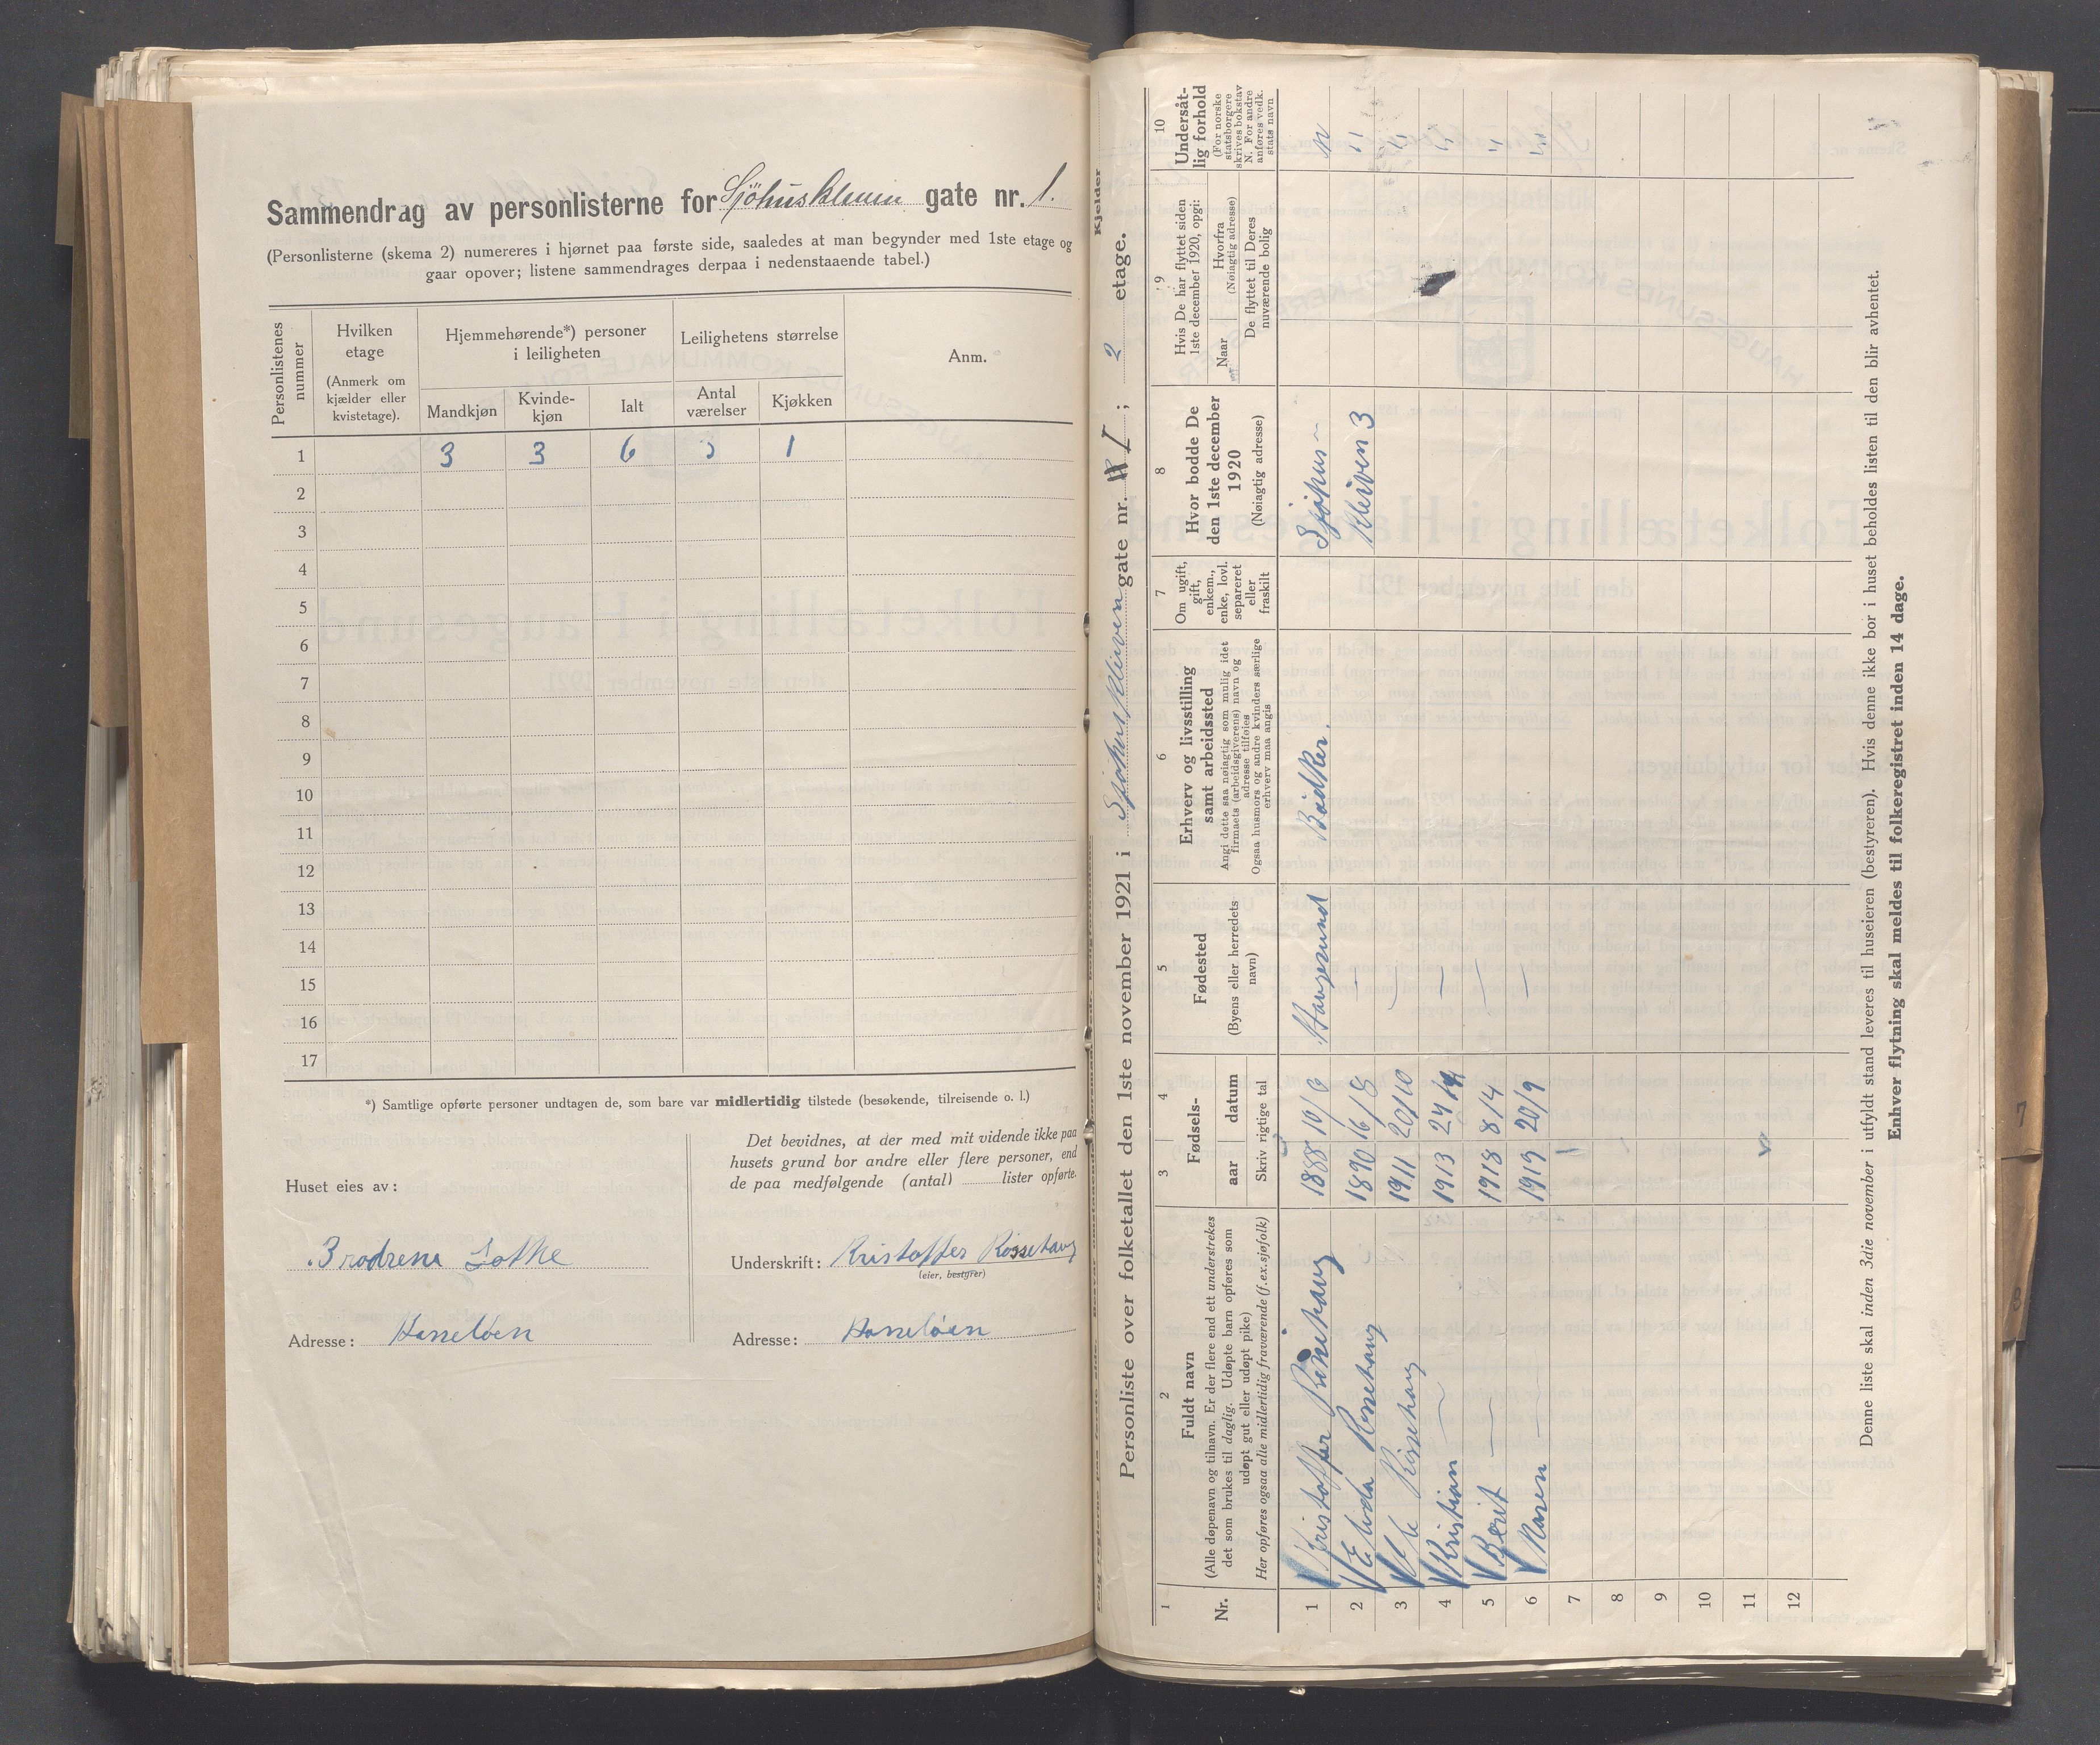 Sammendrag av personlisterne for Sjöhuskleiven gate nr. 1.
(Personlisterne (skema 2) numereres i hjørnet paa første side, saaledes at man begynder med 1ste etage og
gaar opover; listene sammendrages derpaa i nedenstaaende tabel.)
Personlistenes nummer
Hvilken etage
(Anmerk om kjælder eller kvistetage).
Hjemmehørende*) personer i leiligheten
Leilighetens størrelse
Anm.
Mandkjøn Kvinde-kjøn Ialt Antal værelser Kjøkken
1 3 3 6 1
2
3
4
5
6
7
8
9
10
11
12
13
14
15
16
17
*) Samtlige opførte personer undtagen de, som bare var midlertidig tilstede (besøkende, tilreisende o. l.)
Huset eies av:
Brødrene Lothe
Adresse: Hasseløen
Det bevidnes, at der med mit vidende ikke paa
husets grund bor andre eller flere personer, end
de paa medfølgende (antal) lister opførte.
Underskrift: Kristoffer Rossehaug
(eier, bestyrer)
Adresse: Hasseløen
Kjelder
Personliste over folketallet den 1ste november 1921 i Sjøhuskleiven gate nr. I; 2 etage.
1
Nr.
2
Fuldt navn
(Alle døpenavn og tilnavn. Er der flere end ett understrekes
det som brukes til daglig. Udøpte barn opføres som
udøpt gut eller udøpt pike)
Her opføres ogsaa alle midlertidig fraværende (f.ex.sjøfolk)
3 4
Fødsels-
aar datum
Skriv rigtige tal
5
Fødested
(Byens eller herredets navn)
6
Erhverv og livsstilling
samt arbeidssted
Angi dette saa nøiagtig som mulig idet
firmaets (arbeidsgiverens) navn og
adresse tilføies
Ogsaa husmors og andre kvinders særlige
erhverv maa angis
7
Om ugift,
gift,
enkem.,
enke, lovl.
separeret
eller
fraskilt
8
Hvor bodde De
den 1ste december
1920
(Nøiagtig adresse)
9
Hvis De har flyttet siden
1ste december 1920, opgi:
Naar
Hvorfra
(Nøiagtig adresse)
De flyttet til Deres
nuværende bolig
10
Undersåt-
lig forhold
(For norske
statsborgere
skrives bokstav
N. For andre
anføres vedk.
stats navn
1 Kristoffer Rossehaug 1888 10/6 Haugesund Bødker. Sjøhus- N
2 Elida Rossehaug 1890 16/8 — Kleiven 3 "
3 Rossehaug 1911 20/10 — "
4 Kristian — 1913 "
5 Berit — 1918 8/4 — "
6 Karen — 1919 20/9 — "
7
8
9
10
11
12
Denne liste skal inden 3die november i utfyldt stand leveres til huseieren (bestyreren). Hvis denne ikke bor i huset beholdes listen til den blir avhentet.
Enhver flytning skal meldes til folkeregistret inden 14 dage.